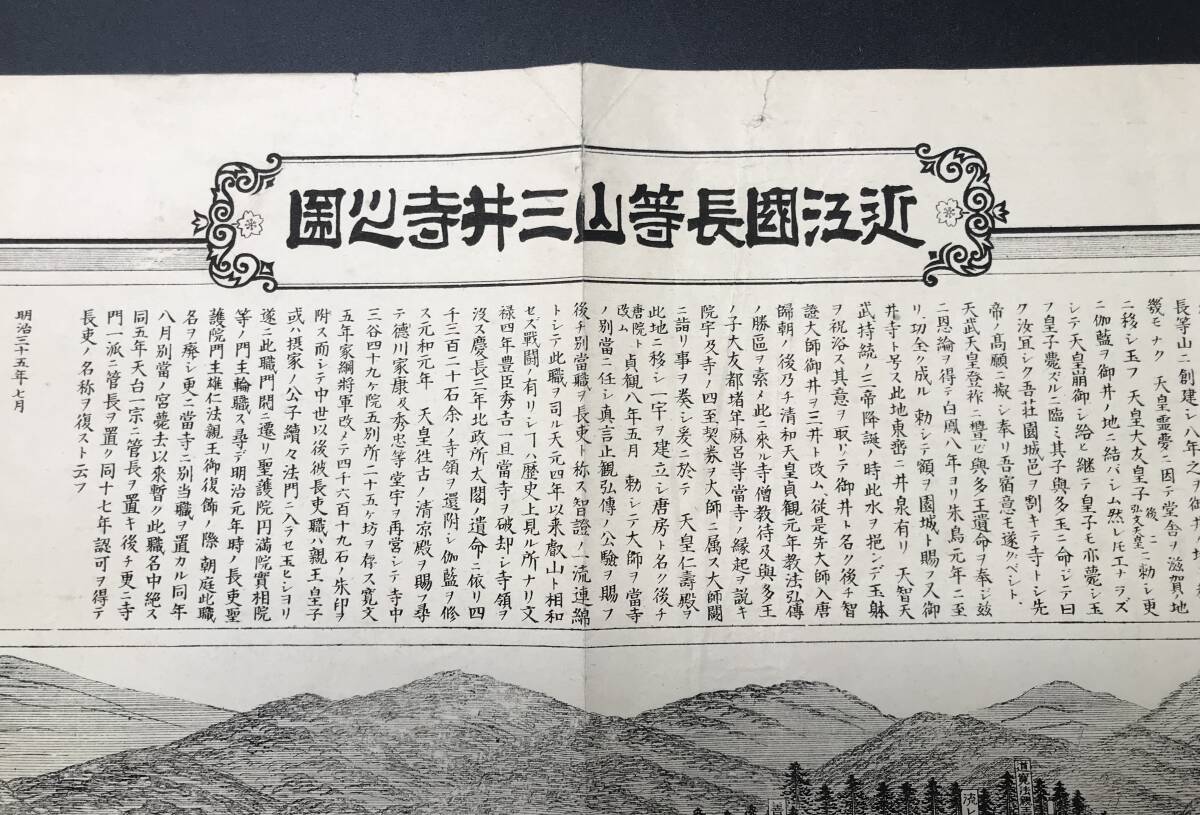 近江國長等山三井寺之圖
長等山ニ創建シ八年之
幾モナク 天皇靈夢ニ因テ堂舎ヲ滋賀ノ地
ニ移シ玉フ 天皇大友皇子 弘文天皇 後ニ勅シ更
ニ伽藍ヲ御井ノ地ニ結バシム然レ𪜈エナラズ
シテ天皇崩御シ給ヒ継テ皇子モ亦薨シ玉
フ皇子薨ズルニ臨ミ其子與多王ニ命シテ曰
ク汝宜シク吾荘園城邑ヲ割キテ寺トシ先
帝ノ髙願ニ擬シ奉リ吾宿意モ遂グベシト
天武天皇登祚ニ豊ビ與多王遺命ヲ奉シ玆
ニ恩綸ヲ得テ白鳳八年ヨリ朱鳥元年ニ至
リ功全ク成ル 勅シテ額ヲ園城ト賜フ又御
井寺ト号ス此地東嵒ニ井泉有リ 天智天
武持統ノ三帝降誕ノ時此水ヲ挹ンデ玉躰
ヲ祝浴ス其意ヲ取リテ御井ト名ク後チ智
證大師御井ヲ三井ト改ム從是先大師入唐
歸朝ノ後乃チ清和天皇貞観元年教法弘傳
ノ勝區ヲ索メ此ニ來ル寺僧教待及與多王
ノ子大友都堵牟麻呂等當寺ノ縁起ヲ說キ
院宇及寺ノ四至契券ヲ大師ニ属ス大師闕
ニ詣リ事ヲ奏シ爰ニ於テ 天皇仁壽殿ヲ
此地ニ移シ一宇ヲ建立シ唐房ト名ク後チ
唐院ト改ム 貞観八年五月 勅シテ大師ヲ當寺
ノ別當ニ任シ真言止觀弘傳ノ公驗ヲ賜フ
後チ別當職ヲ長吏ト称ス智證ノ流連綿
トシテ此職ヲ司ル天元四年以来叡山ト相和
セズ戦闘ノ有リシヿハ歴史上見ル所ナリ文
禄四年豊臣秀吉一旦當寺ヲ破却シ寺領ヲ
沒ス慶長三年北政所太閤ノ遺命ニ依リ四
千三百二十石余ノ寺領ヲ還附シ伽藍ヲ修
ス元和元年 天皇徃古ノ清凉殿ヲ賜フ尋
テ徳川家康及秀忠等堂宇ヲ再営シテ寺中
三谷四十九ヶ院五別所二十五ヶ坊ヲ存ス寛文
五年家綱將軍改メテ四千六百十九石ノ朱印ヲ
附ス而シテ中世以後彼長吏職ハ親王皇子
或ハ摂家ノ公子續々法門ニ入ラセ玉ヒシヨリ
遂ニ此職門閥ニ遷リ聖護院円滿院實相院
等ノ門主輪職ス尋デ明治元年時ノ長吏聖
護院門主雄仁法親王御復飾ノ際朝庭此職
名ヲ廃シ更ニ當寺ニ別当職ヲ置カル同年
八月別當ノ宮薨去以來暫ク此職名中絶ス
同五年天台一宗ニ管長ヲ置キ後チ更ニ寺
門一派ニ管長ヲ置ク同十七年認可ヲ得テ
長吏ノ名称ヲ復スト云フ
明治三十五年七月